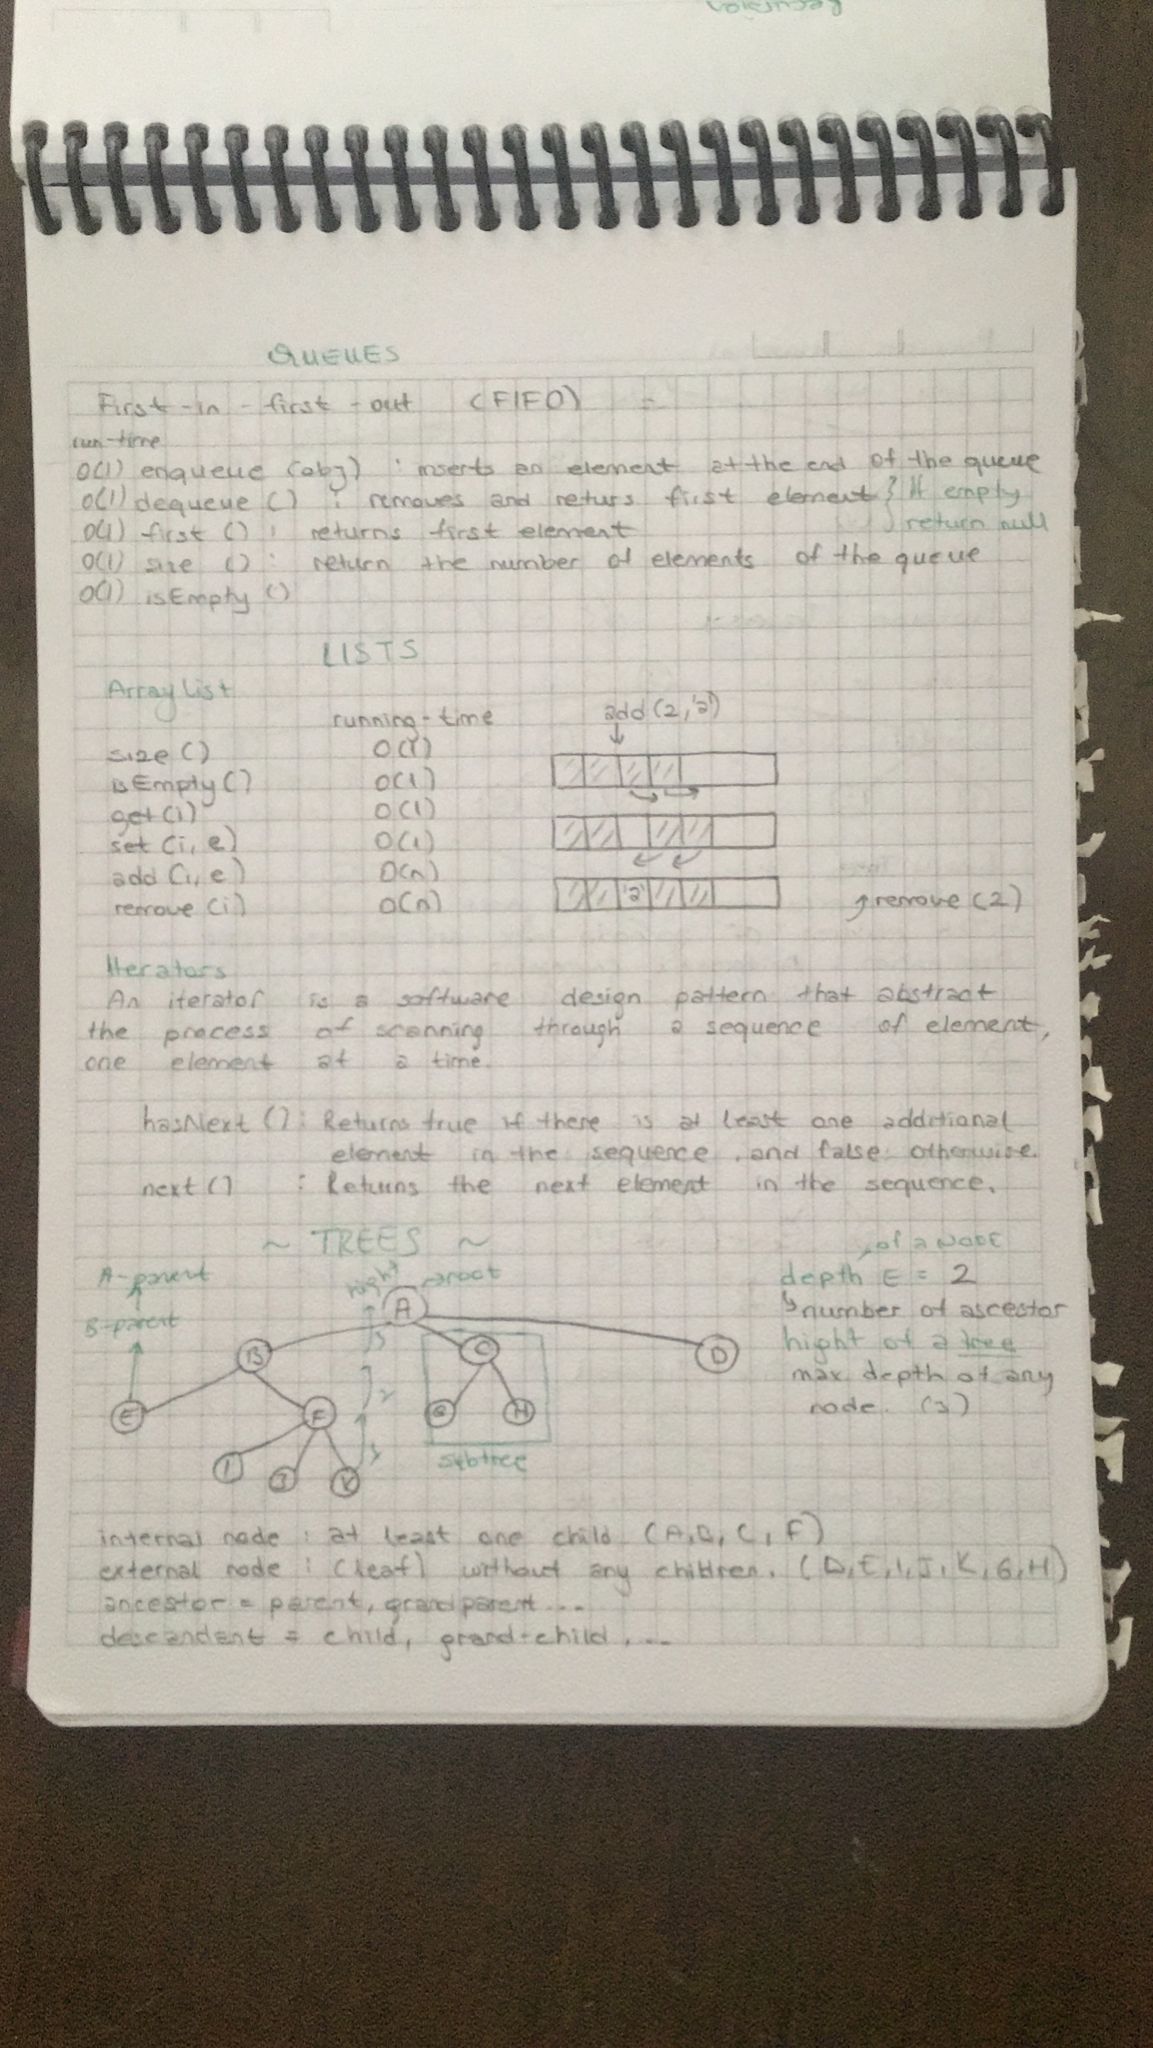 Recursion
QUEUES
First-in-first-out (FIFO)
run-time
O(1) enqueue (obj) : inserts an element at the end of the queue
O(1) dequeue () : removes and returs first element } If empty
O(1) first () : returns first element } return null
O(1) size () : return the number of elements of the queue
O(1) isEmpty ()
LISTS
Array List
running-time
add (2,'a')
size () O(1)
isEmpty () O(1)
get (i) O(1)
set (i, e) O(1)
add (i, e) O(n)
remove (i) O(n)
'a'
remove (2)
Iterators
An iterator is a software design pattern that abstract
the process of scanning through a sequence of element,
one element at a time.
hasNext () : Returns true if there is at least one additional
element in the sequence, and false otherwise.
next () : Returns the next element in the sequence.
~ TREES ~
of a NODE
A-parent
hight
root
depth E = 2
B-parent
A
number of ascestor
B C D
1
hight of a tree
2
max depth of any
E F G H
node. (3)
3
I J K
subtree
internal node : at least one child (A, B, C, F)
external node : (leaf) without any children. (D, E, I, J, K, G, H)
ancestor = parent, grandparent ...
descandant = child, grand-child, ...